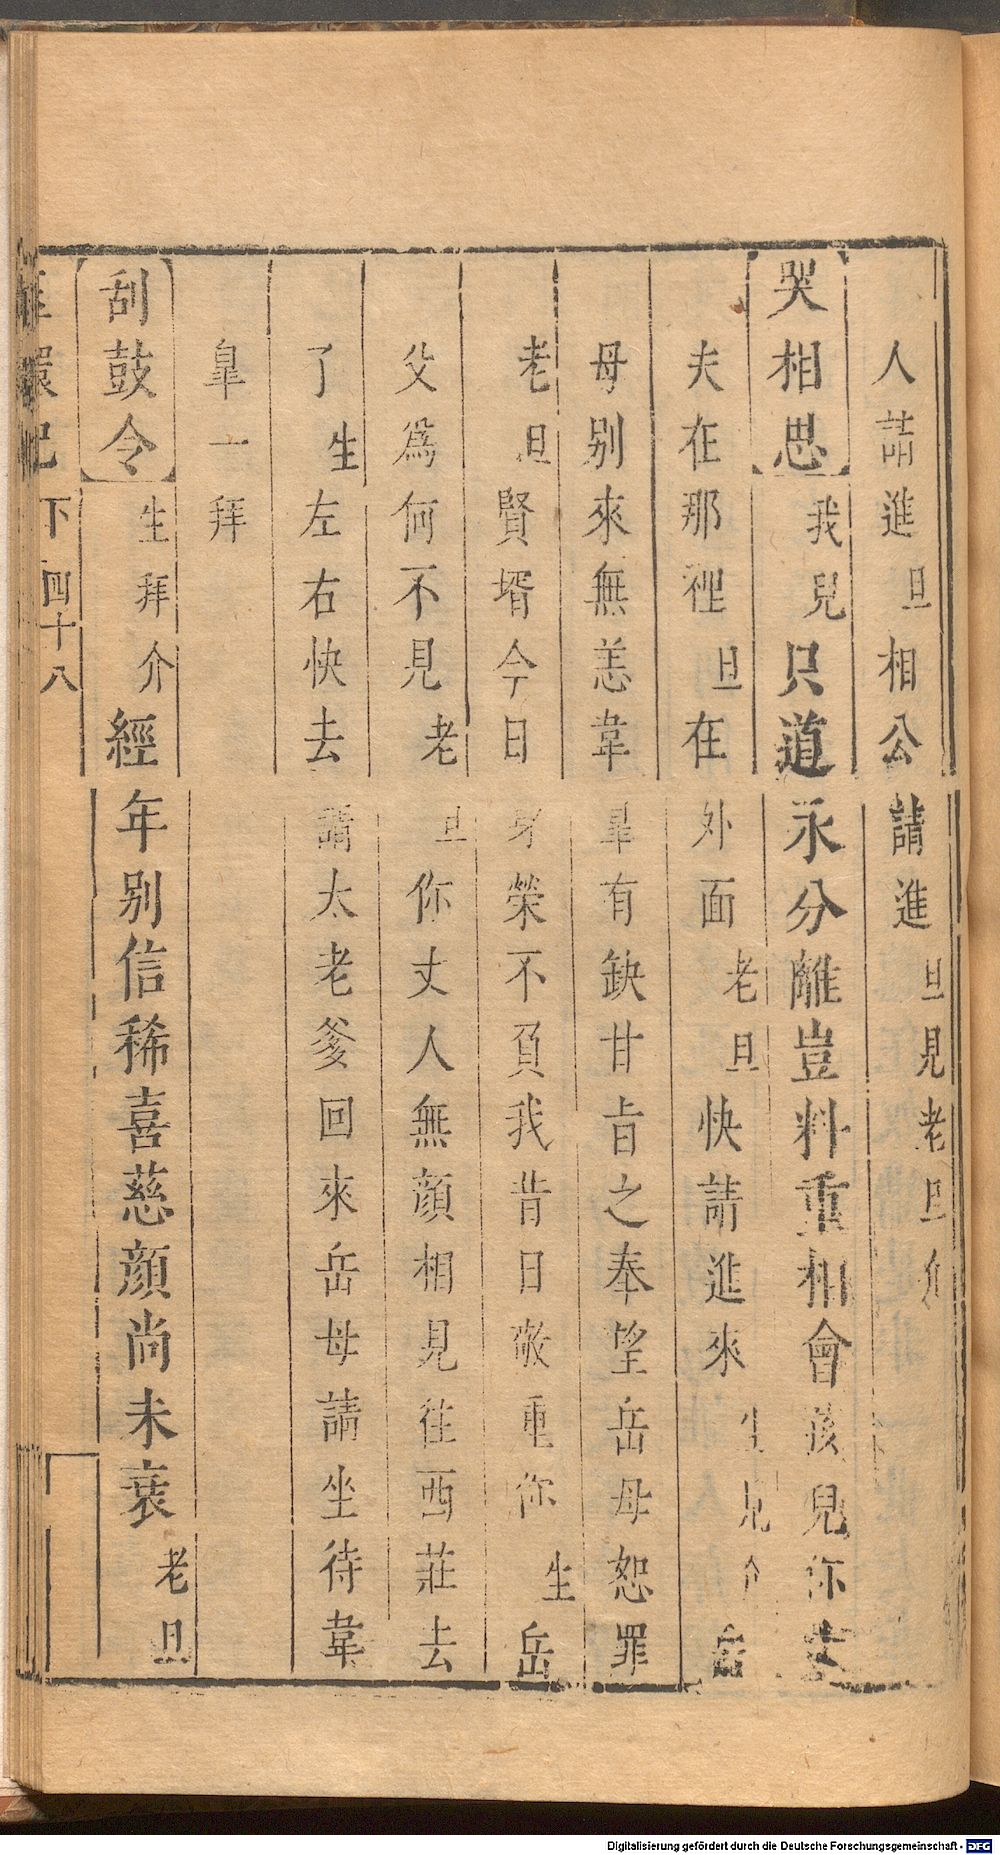 人請進旦相公請進旦見老旦介
哭相思我兒只道永分離豈料重相會孩兒你丈
夫在那裡旦在外面老旦快請進來生見介岳
母別來無恙韋臯有缺甘旨之奉望岳母恕罪
老旦賢壻今日身榮不負我昔日敬重你生岳
父爲何不見老旦你丈人無顔相見往西莊去
了生左右快去請太老爹回來岳母請坐待韋
臯一拜
刮鼓令生拜介經年別信稀喜慈顔尚未衰老旦
環記 下 四十八
Digitalisierung gefördert durch die Deutsche Forschungsgemeinschaft - DFG